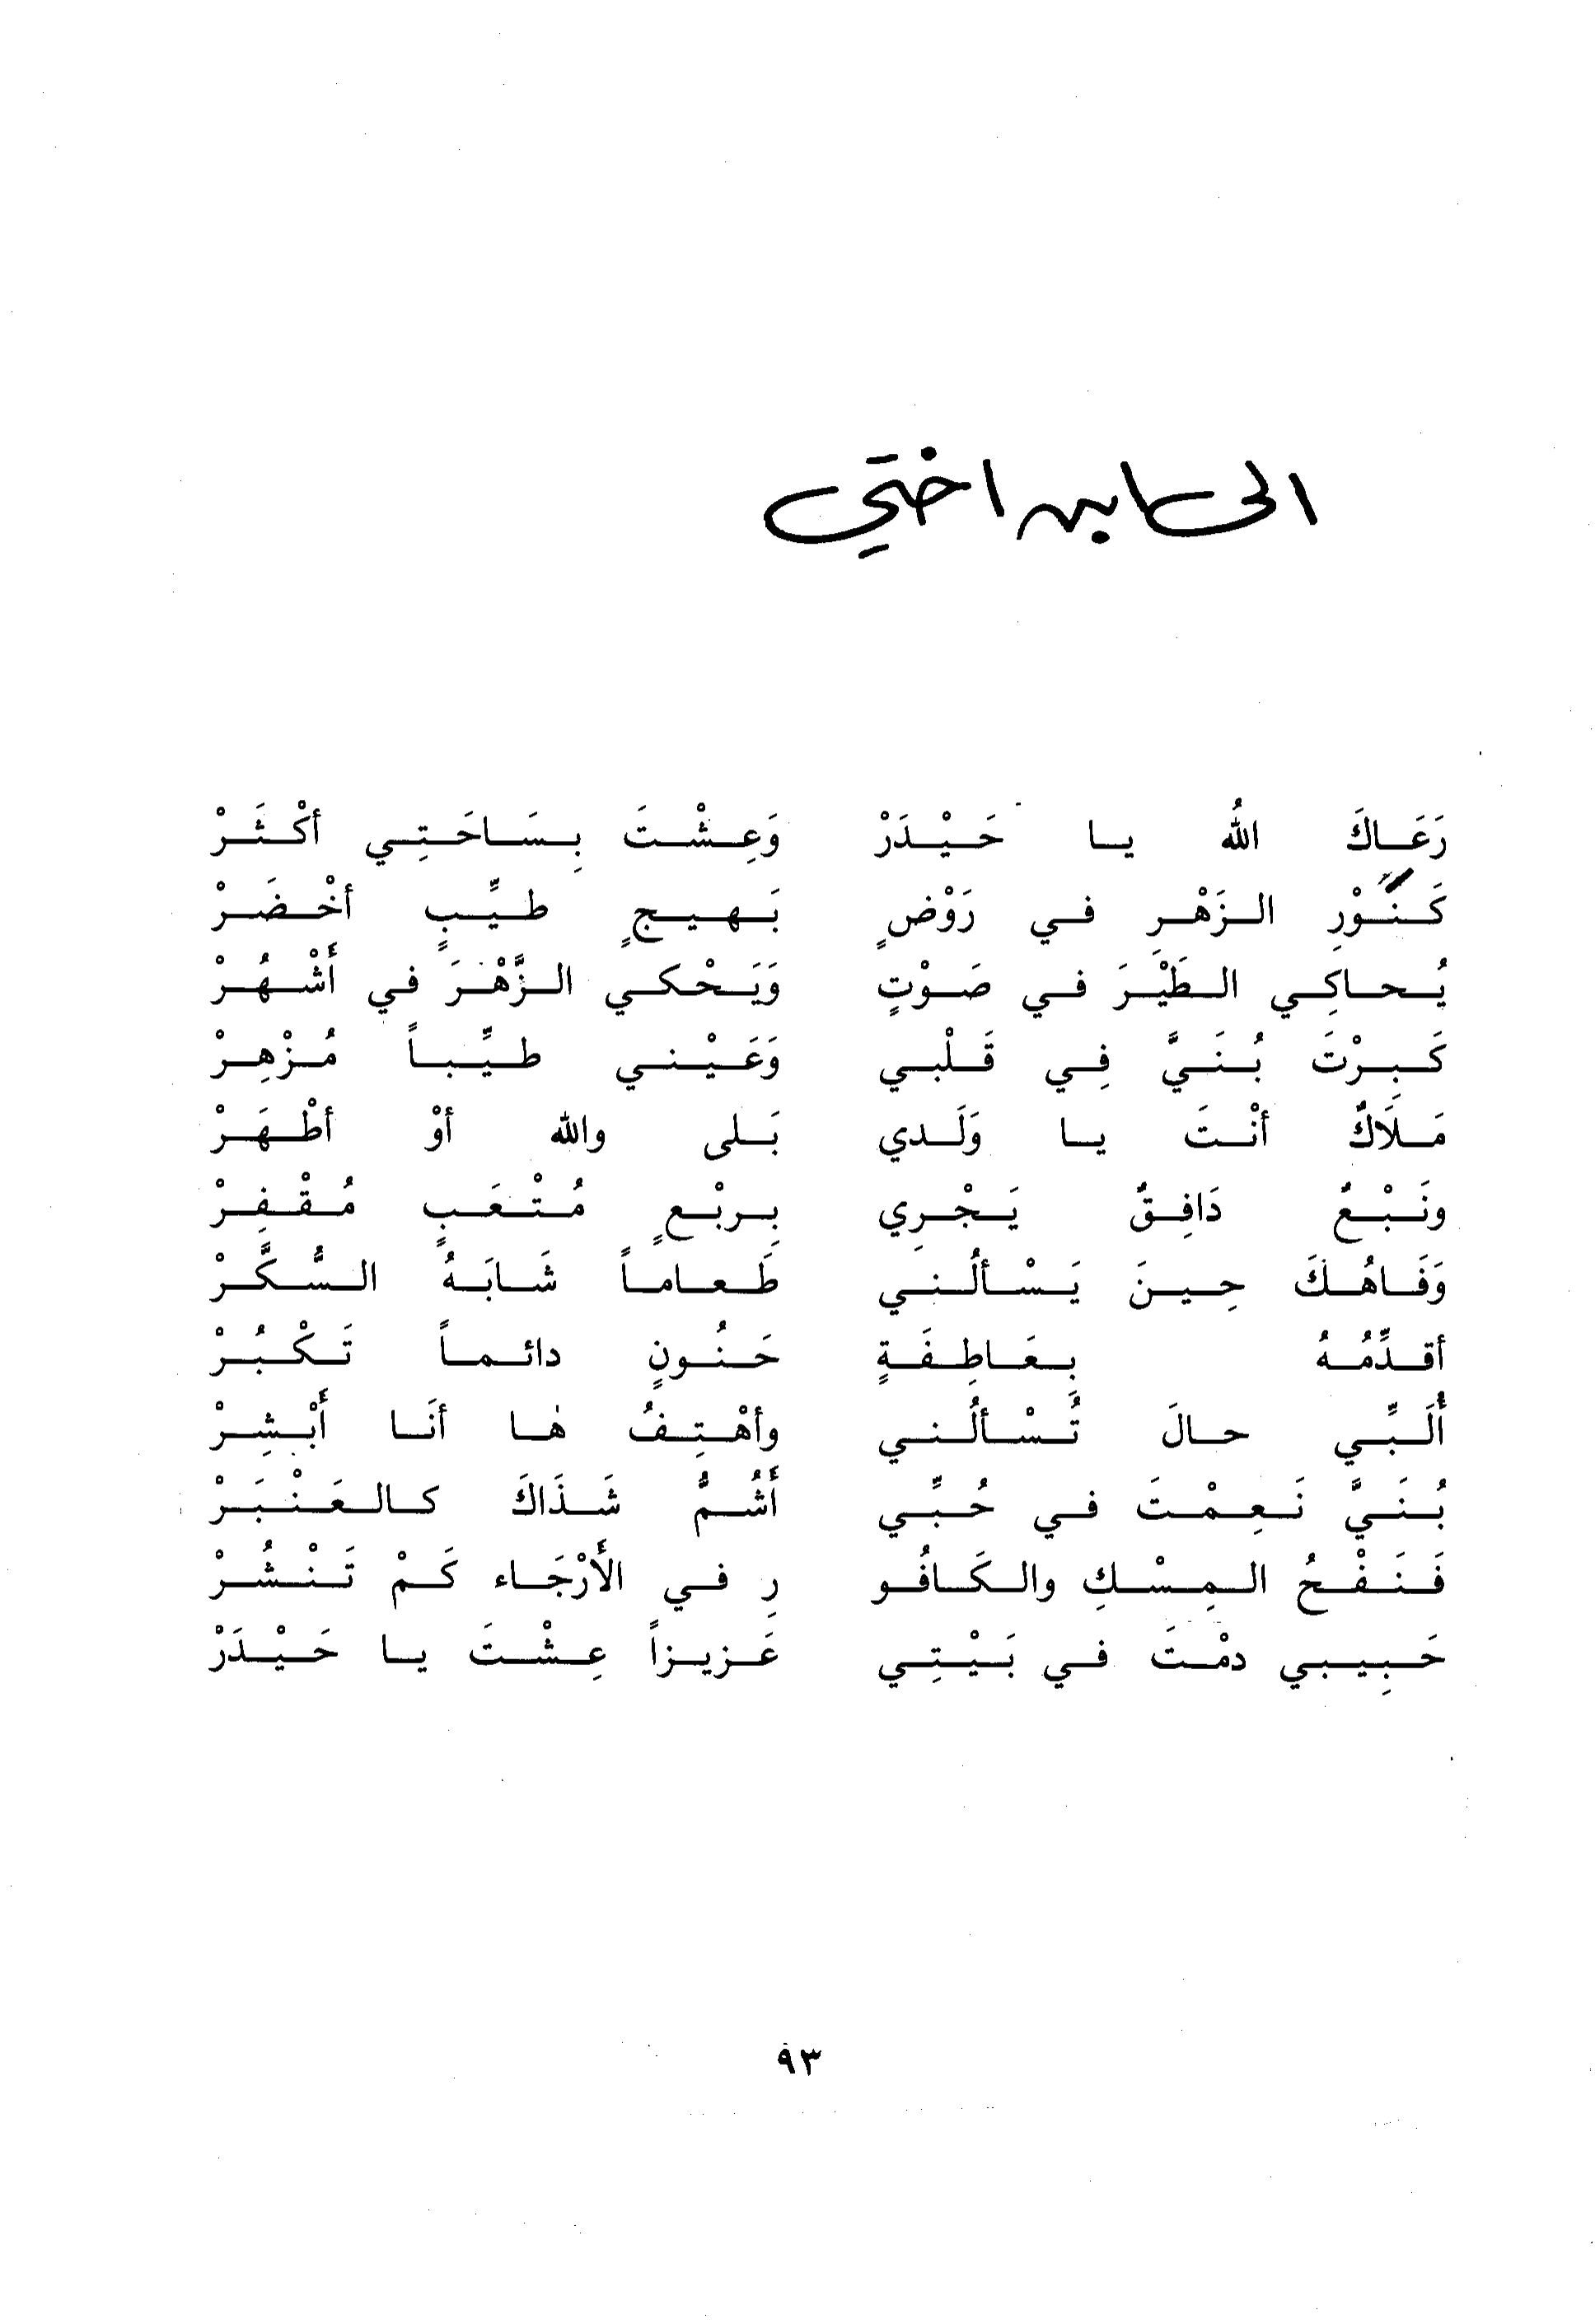 الى ابن اختي
رَعَاكَ اللهُ يا حَيْدَرْ وَعِشْتَ بِسَاحَتِي أكْثَرْ
كَنَوْرِ الزَهْرِ في رَوْضٍ بَهيجٍ طيِّبٍ أخْضَرْ
يُحاكِي الطَيْرَ في صَوْتٍ وَيَحْكي الزَّهْرَ في أَشْهُرْ
كَبِرْتَ بُنَيَّ فِي قَلْبي وَعَيْني طيِّباً مُزْهِرْ
مَلَاكٌ أنْتَ يا وَلَدي بَلى والله أوْ أطْهَرْ
ونَبْعٌ دَافِقٌ يَجْرِي بِربْعٍ مُتْعَبٍ مُقْفِرْ
وَفَاهُكَ حِينَ يَسْألُني طَعاماً شَابَهُ السُّكَّرْ
أقدِّمُهُ بِعَاطِفَةٍ حَنُونٍ دائماً تَكْبُرْ
أُلَبِّي حالَ تَسْألُني وأهْتِفُ هٰا أنَا أَبْشِرْ
بُنَيَّ نَعِمْتَ في حُبِّي أَشُمُّ شَذَاكَ كالعَنْبَرْ
فَنَفْحُ المِسْكِ والكَافُو رِ في الأَرْجَاء كَمْ تَنْشُرْ
حَبِيبي دمْتَ في بَيْتِي عَزيزاً عِشْتَ يا حَيْدَرْ
٩٣